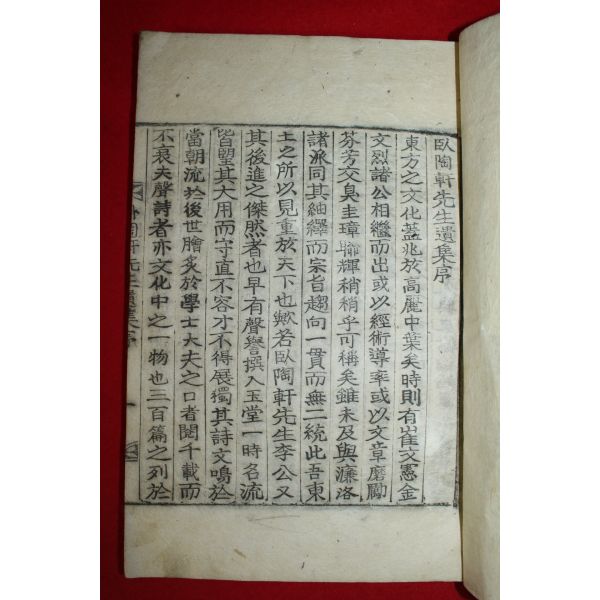 臥陶軒先生遺集序
東方之文化蓋兆於高麗中葉矣時則有崔文憲金
文烈諸公相繼而出或以經術導率或以文章磨勵
芬芳交臭圭璋聯輝稍稍乎可稱矣雖未及與濂洛
諸派同其紬繹而宗旨趨向一貫而無二統此吾東
土之所以見重於天下也歟若臥陶軒先生李公又
其後進之傑然者也早有聲譽撰入玉堂一時名流
皆望其大用而守直不容才不得展獨其詩文鳴於
當朝流於後世膾炙於學士大夫之口者閱千載而
不衰夫聲詩者亦文化中之一物也三百篇之列於